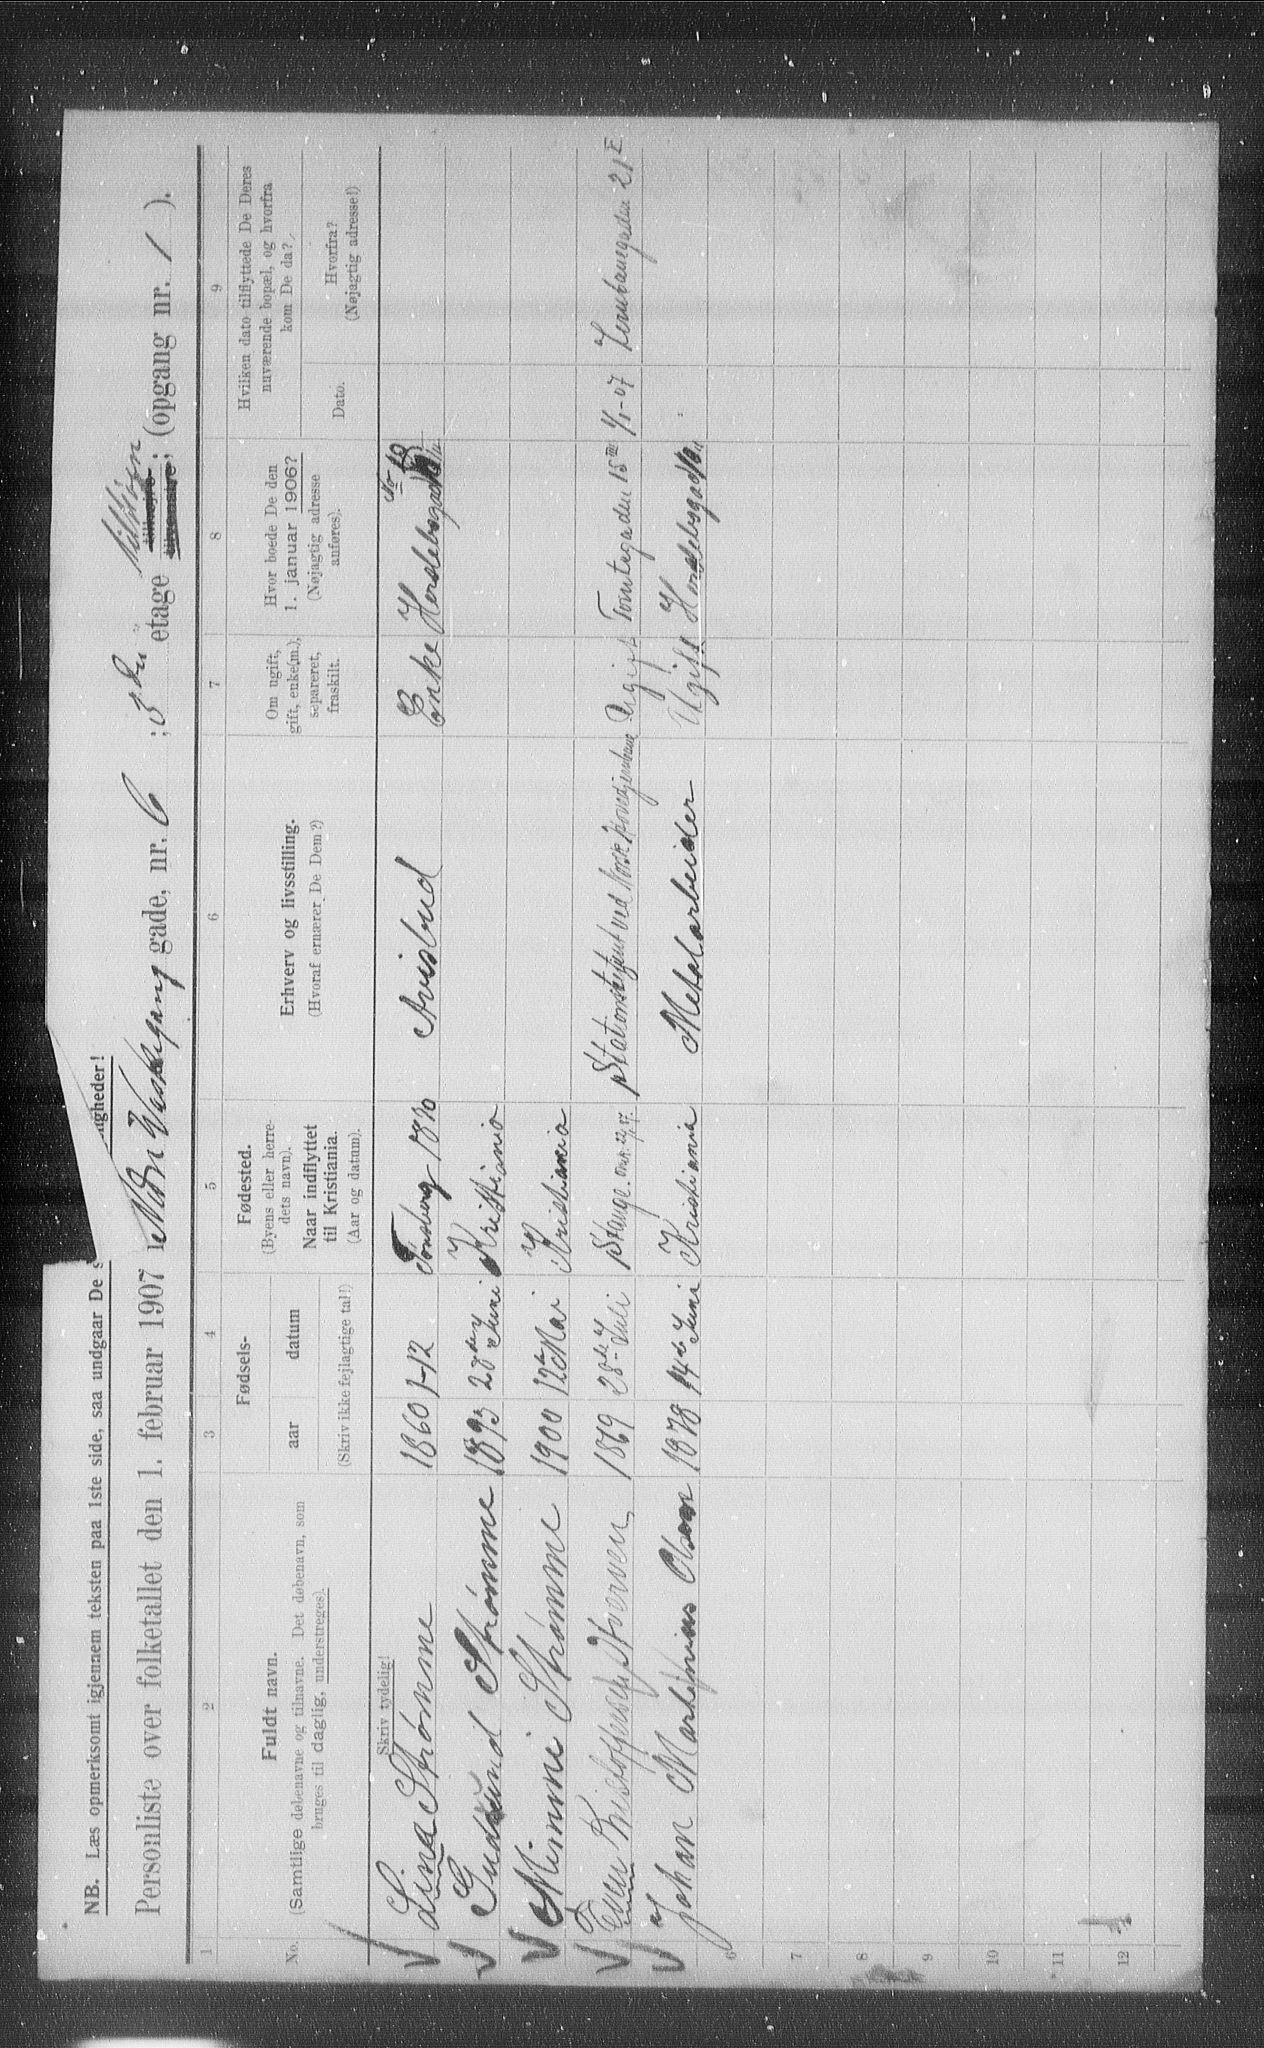 NB. Læs opmerksomt igjennem teksten paa 1ste side, saa undgaar De
ligheder!
Personliste over folketallet den 1. februar 1907 i Nedre Vaskegang gade, nr. 6 ; 3die etage (opgang nr. 1 ).
1 2 3 4 5 6 7 8 9
No.
Fuldt navn.
(Samtlige døbenavne og tilnavne. Det døbenavn, som
bruges til daglig, understreges).
Fødsels-
aar datum
(Skriv ikke fejlagtige tal!)
Fødested.
(Byens eller herre-
dets navn).
Naar indflyttet
til Kristiania.
(Aar og datum).
Erhverv og livsstilling.
(Hvoraf ernærer De Dem?)
Om ugift,
gift, enke(m.),
separeret,
fraskilt.
Hvor boede De den
1. januar 1906?
(Nøjagtig adresse
anføres).
Hvilken dato tilflyttede De Deres
nuværende bopæl, og hvorfra
kom De da?
Dato.
Hvorfra?
(Nøjagtig adresse!)
Skriv tydelig!
Lina Strømme 1860 1-12 Tønsberg 1870 Avisbud Enke
Gudrund Strømme 1893 28de Juni Kristiania
Minni Strømme 1900 12te Mai Kristiania
Even Kristoffersen 1869 28de Juli Stange Ugift Tomtegaden 15 1/1-07 Jernbanegaden 21
Johan Olsen 1878 14de Juni Kristiania Metalarbeider Ugift
6
7
8
9
10
11
12